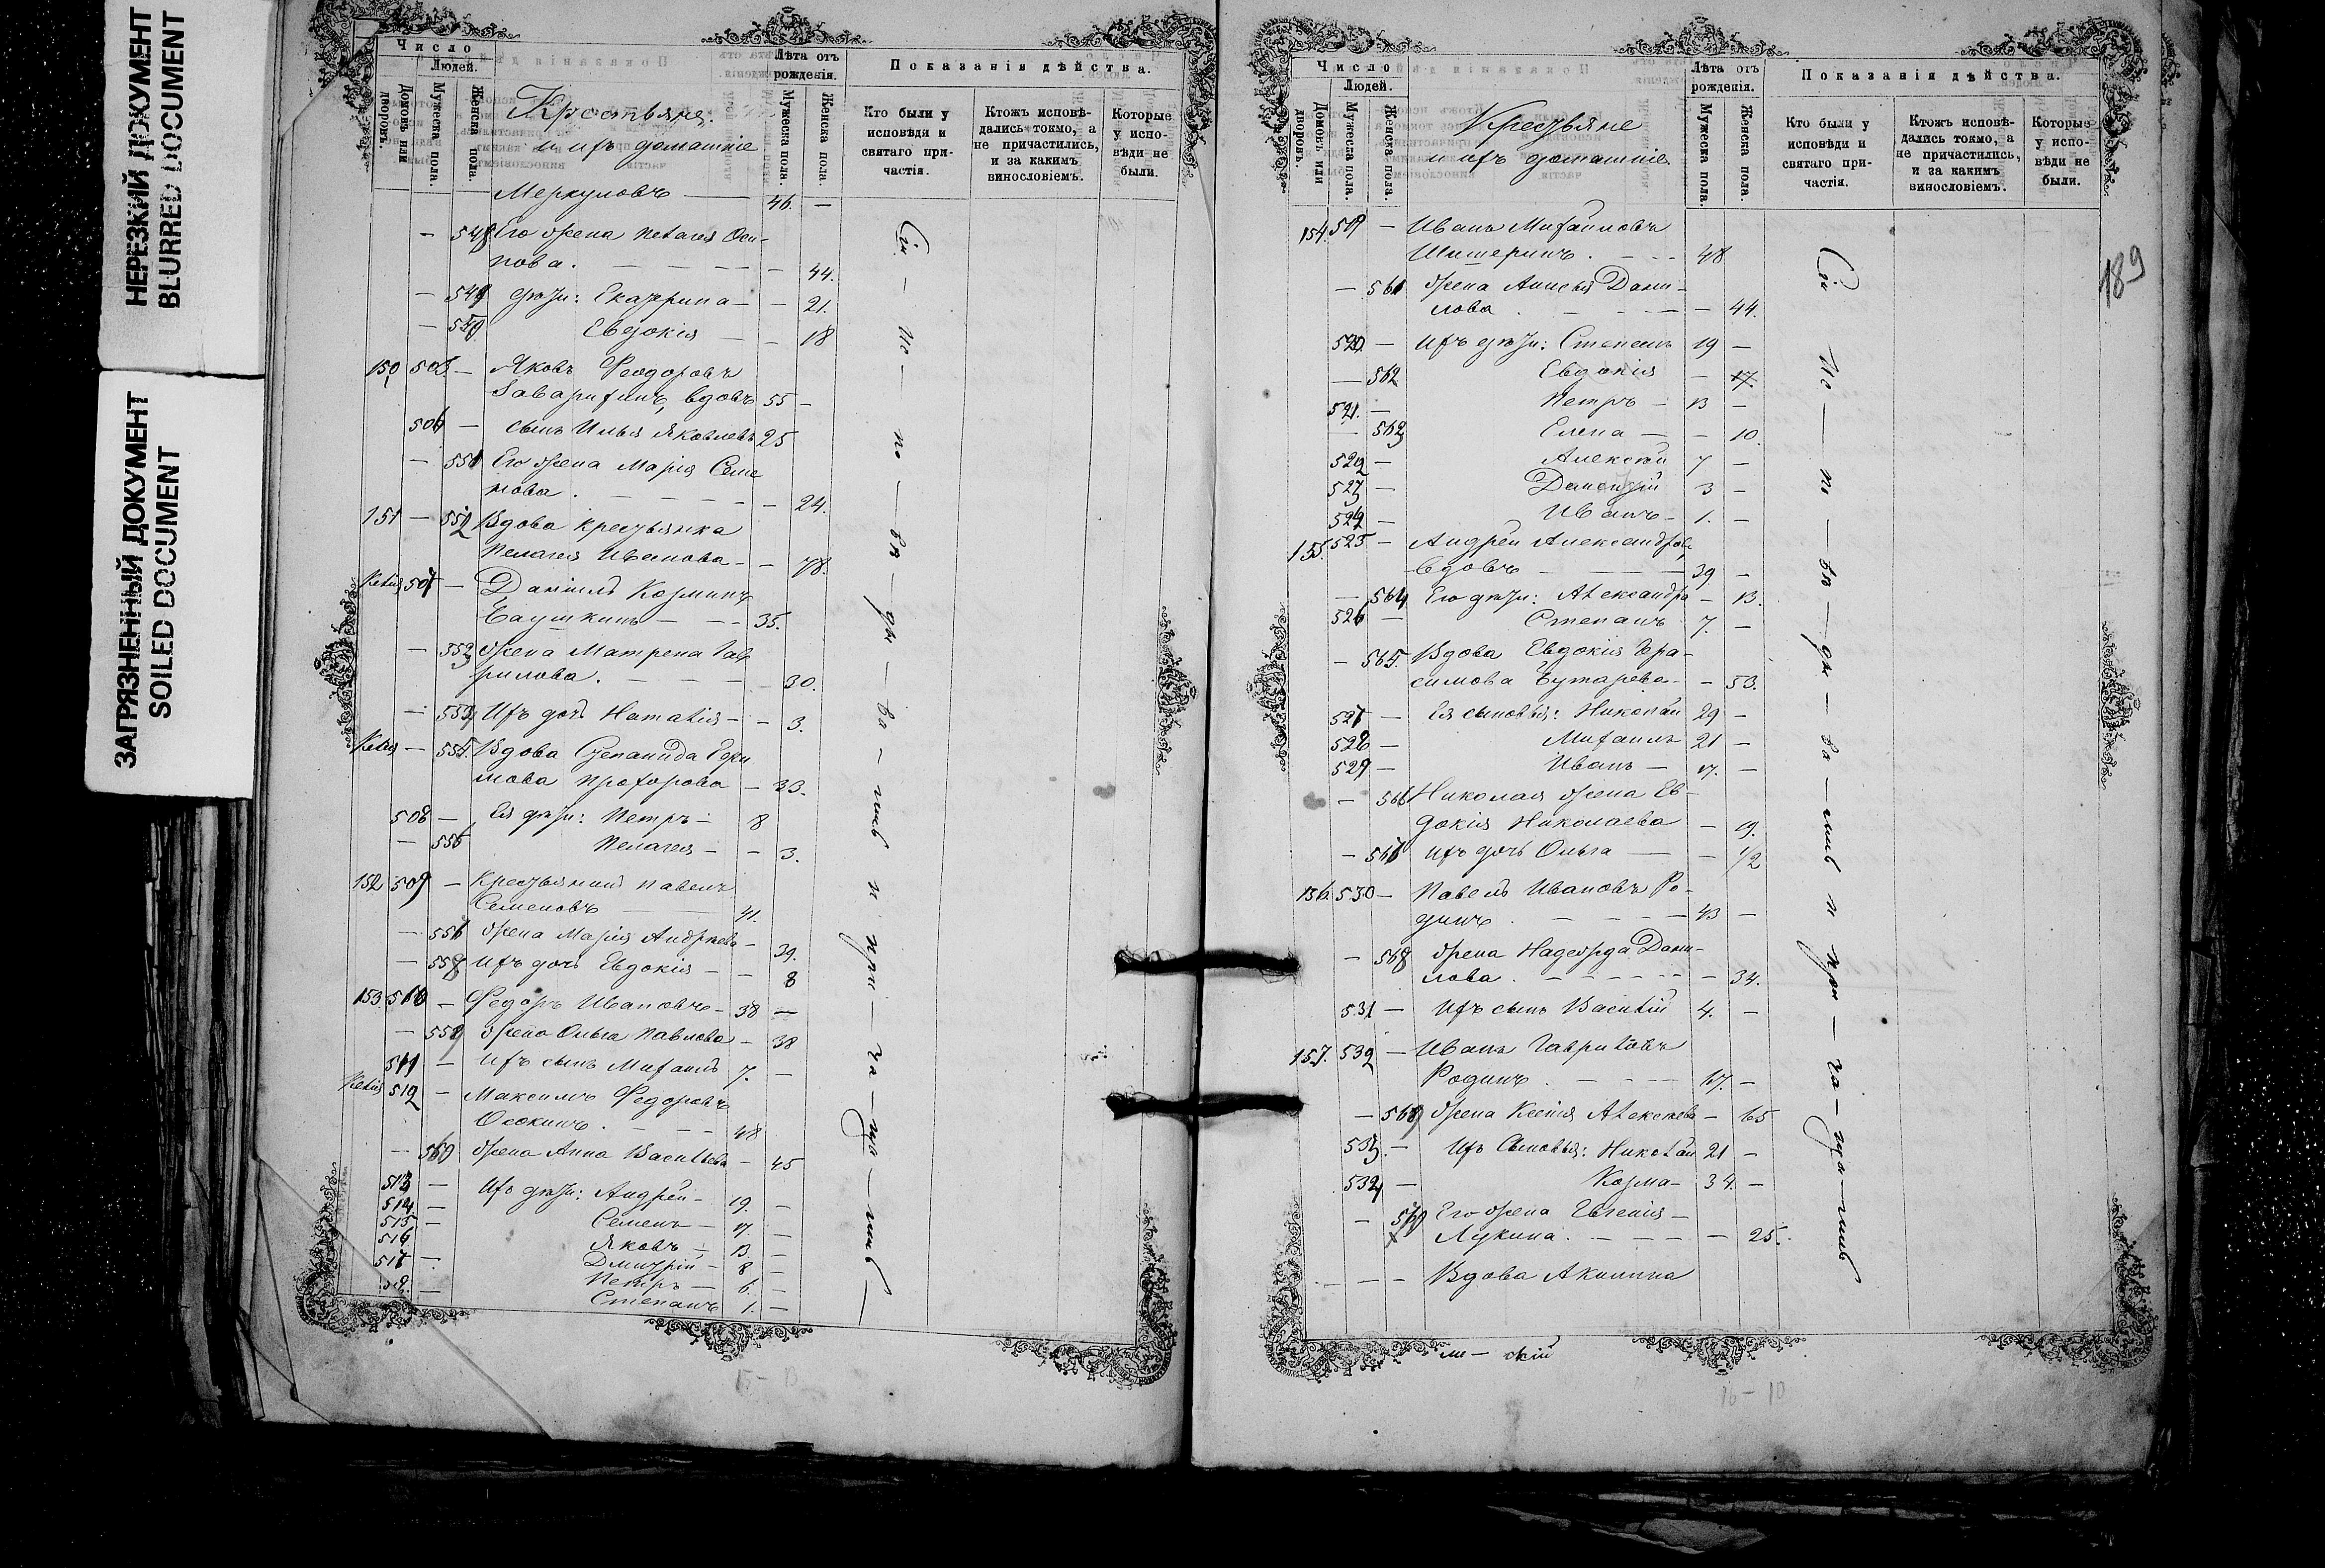 НЕРЕЗКИЙ ДОКУМЕНТ
BLURRED DOCUMENT
ЗАГРЯЗНЕННЫЙ ДОКУМЕНТ
SOILED DOCUMENT
Число
Людей.
Домовъ или дворовъ.
Мужеска пола.
Женска пола.
Крестьяне
и ихъ домашніе
Лѣта отъ рожденія.
Мужеска пола.
Женска пола.
Показанія дѣйства.
Кто были у исповѣди и святаго причастія.
Ктожъ исповѣдались токмо, а не причастились, и за какимъ винословіемъ.
Которые у исповѣди не были.
Меркуловъ — 46. —
— 548 Его жена Пелагея Оси-
пова. — — — — 44.
— 549 дѣти: Екатерина — — 21.
— 550 Евдокія — — 18
150 505 — Яковъ Феодоровъ
вдовъ 55 —
506 — сынъ Илья Яковлевъ 25
— 551 Его жена Марія Семе
нова. — — — — 24.
151 — 552 Вдова крестьянка
Пелагея Иванова — — 78.
Келія 507 — Даніилъ Козминъ
— — — 35.
— 553 жена Матрена Гав
рилова. — — — 30.
— 554 Ихъ дочь Наталія — — 3.
Келія — 555. Вдова Степанида
Прохорова — 33.
508 — Ея дѣти: Петръ — 8
— 556 Пелагея — — 3.
152 509 — Крестьянинъ Павелъ
Семеновъ — 41.
— 557 жена Марія Андреева — 39.
— 558 Ихъ дочь Евдокія — — 8
153. 510 — Федоръ Ивановъ — 38 —
— 559 жена Ольга Павлова — 38
511 — Ихъ сынъ Михаилъ 7. —
Келія 512 — Максимъ Федоровъ
Осокинъ. — — — 48
— 560 жена Анна Васильева — 45
513 — Ихъ дѣти: Андрей — 19. —
514. — Семенъ — 17. —
515 — Яковъ — 13. —
516 Дмитрій — 8 —
517 — Петръ — 6. —
518. — Степанъ 1. —
Сіи — по — — — — — и при — ча — сти — лись —
Число
Людей.
Домовъ или дворовъ.
Мужеска пола.
Женска пола.
Крестьяне
и ихъ домашніе.
Лѣта отъ рожденія.
Мужеска пола.
Женска пола.
Показанія дѣйства.
Кто были у исповѣди и святаго причастія.
Ктожъ исповѣдались токмо, а не причастились, и за какимъ винословіемъ.
Которые у исповѣди не были.
189
154. 519 — Иванъ Михайловъ
Шишеринъ. — — 48
— 561 жена Анисья Дани-
лова. — — — — 44.
520. — Ихъ дѣти: Степанъ 19 —
— 562 Евдокія — 17.
521. — Петръ — 13 —
— 563 Елена — — 10.
522 — Алексѣй 7 —
523 — 3 —
524 — Иванъ — 1. —
155. 525 — Андрей Александровъ,
вдовъ — — 39 —
— 564 Его дѣти: Александра — 13.
526 — Степанъ 7. —
— 565. Вдова Евдокія Гера-
симова Бутарева — — 53.
527 — Ея сыновья: Николай 29 —
528 — Михаилъ 21 —
529 — Иванъ — 17. —
— 566 Николая жена Ев-
докія Николаева — 19.
— 567 Ихъ дочь Ольга — — 1/2
156. 530 — Павелъ Ивановъ Ро-
динъ. — — — 43 —
— 568 жена Надежда Дани-
лова. — — — — 34.
531 — Ихъ сынъ Василій 4. —
157. 532 — Иванъ Гавриловъ
Родинъ. — — — 67. —
— 569 жена Ксенія Алексѣева — 65
533. — Ихъ Сыновья: Николай 21 —
534 — Козма — 34. —
— 570 Его жена Евгенія —
Лукина. — — — — 25.
— — — Вдова Акилина
Сіи — — по — — — — — и при — ча — сти — лись
16-10